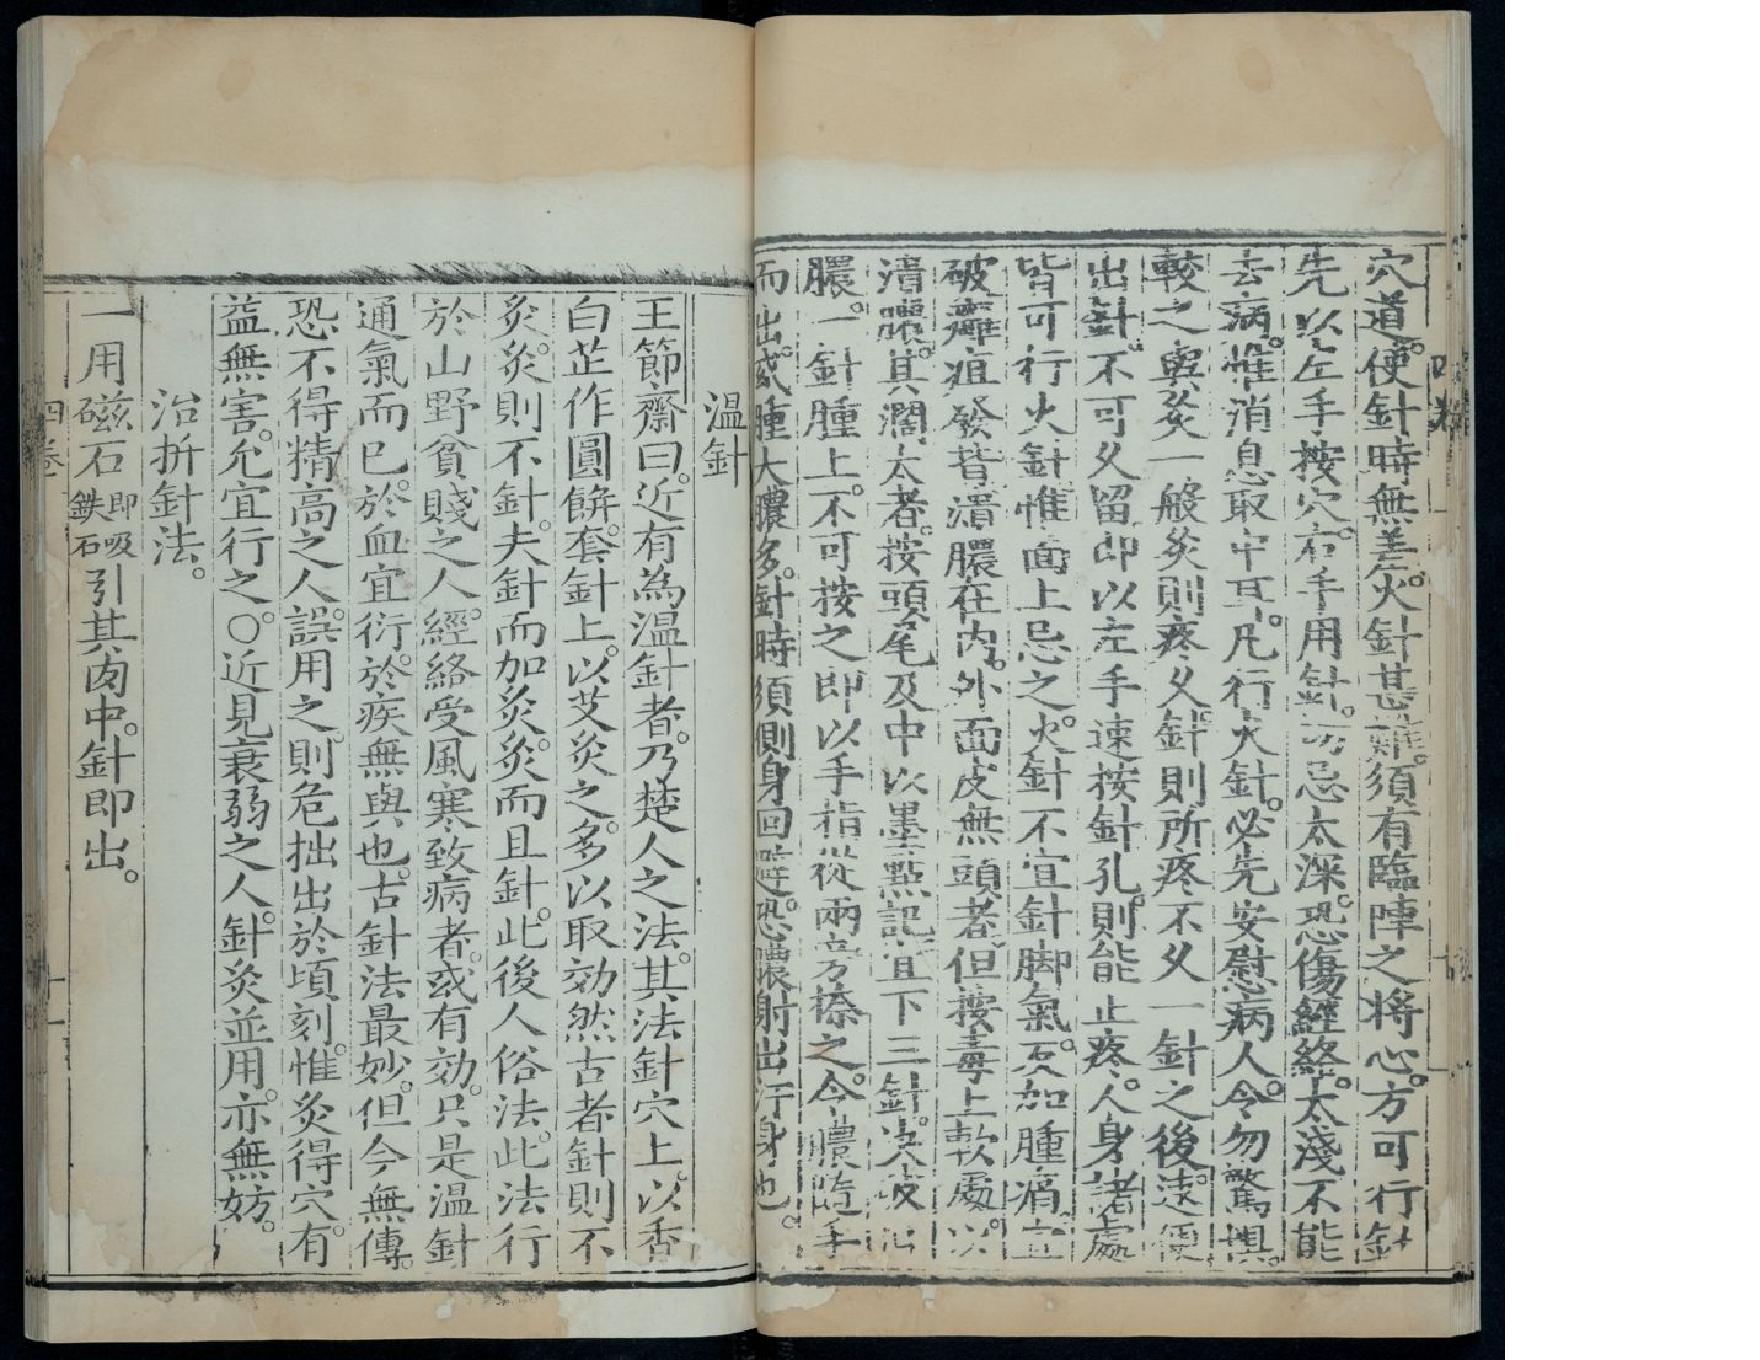 穴道。便針時無差。火針甚難。須有臨陣之將心。方可行針
先以左手按穴。右手用針。切忌太深。恐傷經絡。太淺不能
去病。惟消息取中耳。凡行火針。必先安慰病人。令勿驚懼。
較之與灸一般。灸則疼久。針則所疼不久。一針之後。速便
出針。不可久留。即以左手速按針孔。則能止疼。人身諸處
皆可行火針。惟面上忌之。火針不宜針脚氣。反加腫痛。宜
破癰疽發背。潰膿在內。外面皮無頭者。但按毒上軟處。以
潰膿。其濶大者。按頭尾及中以墨點記。宜下三針。決破
膿。一針腫上。不可按之。即以手指從兩旁捺之。令膿隨手
而出。或腫大膿多。針時須側身回避。恐膿射出汙身也。
温針
王節齋曰。近有為温針者。乃楚人之法。其法針穴上。以香
白芷作圓餅。套針上。以艾灸之。多以取効。然古者針則不
灸。灸則不針。夫針而加灸。灸而且針。此後人俗法。此法行
於山野貧賤之人。經絡受風寒致病者。或有効。只是温針
通氣而已。於血宜衍。於疾無與也。古針法最妙。但今無傳。
恐不得精高之人。誤用之。則危拙出於頃刻。惟灸得穴。有
益無害。允宜行之。○近見衰弱之人。針灸並用。亦無妨。
治折針法。
一用磁石即吸鉄石引其肉中。針即出。
四卷
十一